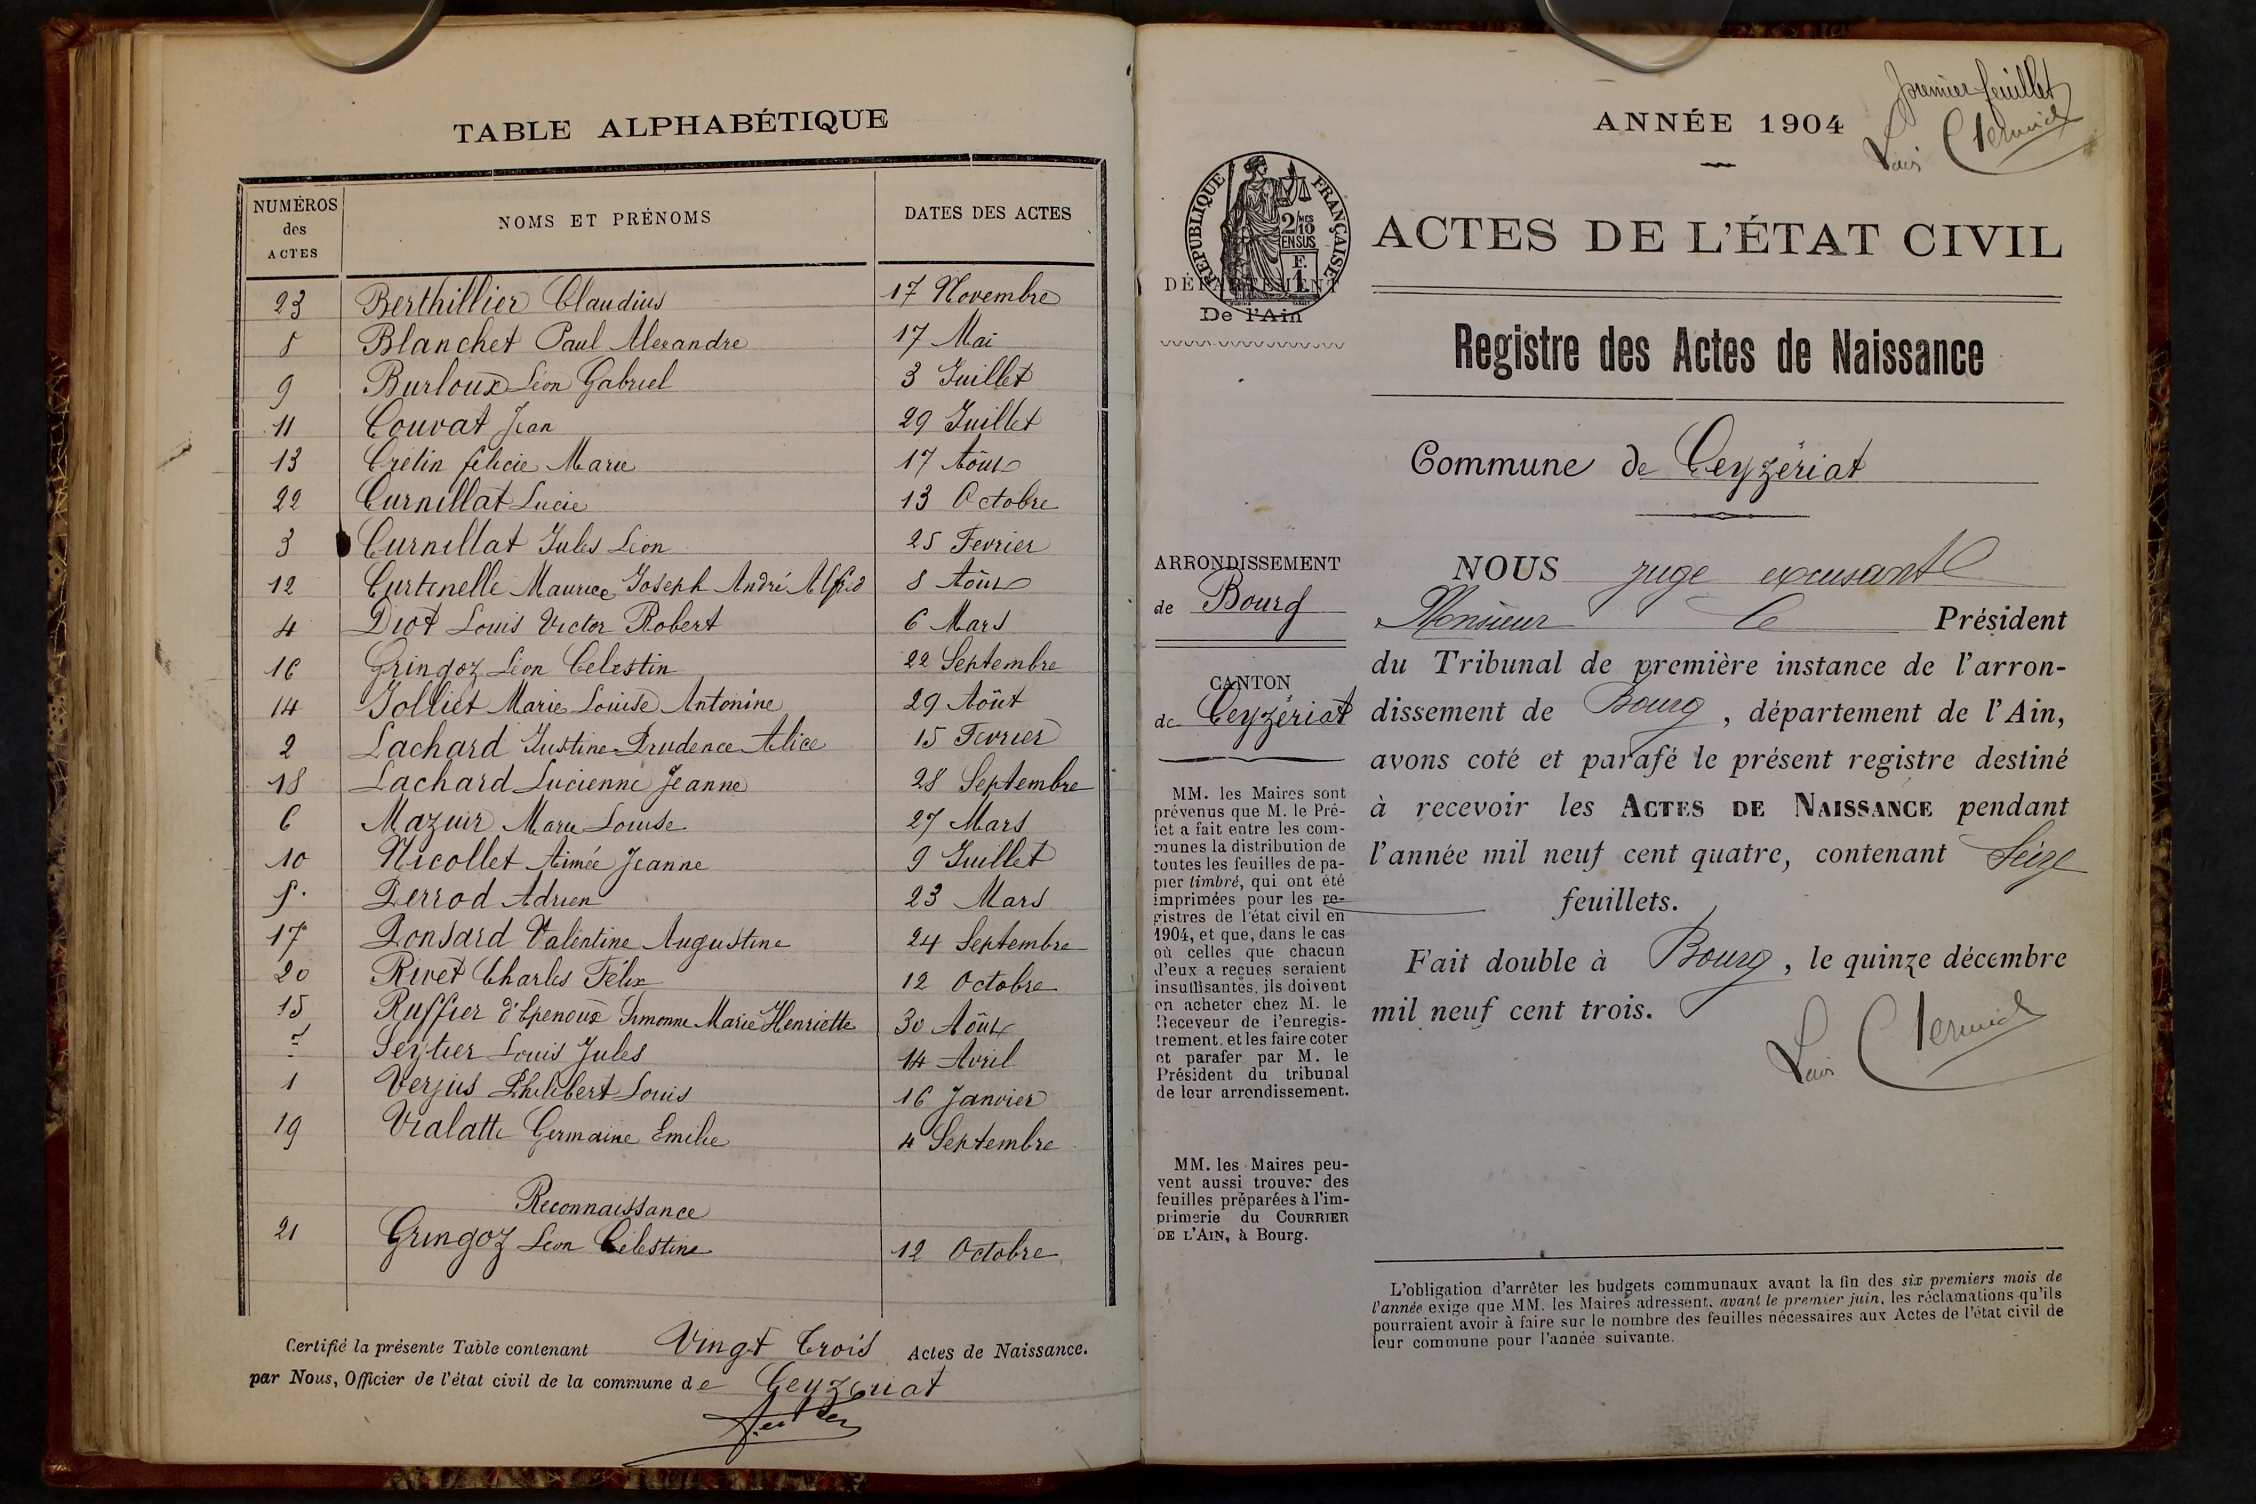 TABLE ALPHABÉTIQUE
NUMÉROS des ACTES NOMS ET PRÉNOMS DATES DES ACTES
23 Berthillier Claudius 17 Novembre
8 Blanchet Paul Alexandre 17 Mai
9 Burloux Léon Gabriel 3 Juillet
11 Couvat Jean 29 Juillet
13 Crétin félicie Marie 17 Août
22 Curnillat Lucie 13 Octobre
3 Curnillat Jules Léon 25 Fevrier
12 Curtenelle Maurice Joseph André Alfred 8 Août
4 Diot Louis Victor Robert 6 Mars
16 Gringoz Léon Celestin 22 Septembre
14 Jolliet Marie Louise Antonine 29 Août
2 Lachard Justine Prudence Alice 15 Fevrier
18 Lachard Lucienne Jeanne 28 Septembre
6 Mazuir Marie Louise 27 Mars
10 Nicollet Aimée Jeanne 9 Juillet
5. Perrod Adrien 23 Mars
17 Ponsard Valentine Augustine 24 Septembre
20 Rivet Charles Félix 12 Octobre
15 Ruffier d'Epenoux Simonne Marie Henriette 30 Août
7 Seytier Louis Jules 14 Avril
1 Verjus Philibert Louis 16 Janvier
19 Vialatte Germaine Emilie 4 Septembre
Reconnaissance
21 Gringoz Léon Célestine 12 Octobre
Certifié la présente Table contenant Vingt Trois Actes de Naissance.
par Nous, Officier de l'état civil de la commune de Ceyzériat
premier feuillet
ANNÉE 1904
RÉPUBLIQUE FRANÇAISE
2/10MES
EN SUS
F.
1
ACTES DE L'ÉTAT CIVIL
DÉPARTEMENT
De l'Ain
Registre des Actes de Naissance
Commune de Ceyzériat
ARRONDISSEMENT
de Bourg
CANTON
de Ceyzériat
MM. les Maires sont
prévenus que M. le Pré-
fet a fait entre les com-
munes la distribution de
toutes les feuilles de pa-
pier timbré, qui ont été
imprimées pour les re-
gistres de l'état civil en
1904, et que, dans le cas
où celles que chacun
d'eux a reçues seraient
insuffisantes, ils doivent
en acheter chez M. le
Receveur de l'enregis-
trement. et les faire coter
et parafer par M. le
Président du tribunal
de leur arrondissement.
MM. les Maires peu-
vent aussi trouver des
feuilles préparées à l'im-
primerie du COURRIER
DE L'AIN, à Bourg.
NOUS juge excusant
Monsieur le Président
du Tribunal de première instance de l'arron-
dissement de Bourg, département de l'Ain,
avons coté et parafé le présent registre destiné
à recevoir les ACTES DE NAISSANCE pendant
l'année mil neuf cent quatre, contenant Seize
feuillets.
Fait double à Bourg, le quinze décembre
mil neuf cent trois.
L'obligation d'arrêter les budgets communaux avant la fin des six premiers mois de
l'année exige que MM. les Maires adressent, avant le premier juin, les réclamations qu'ils
pourraient avoir à faire sur le nombre des feuilles nécessaires aux Actes de l'état civil de
leur commune pour l'année suivante.